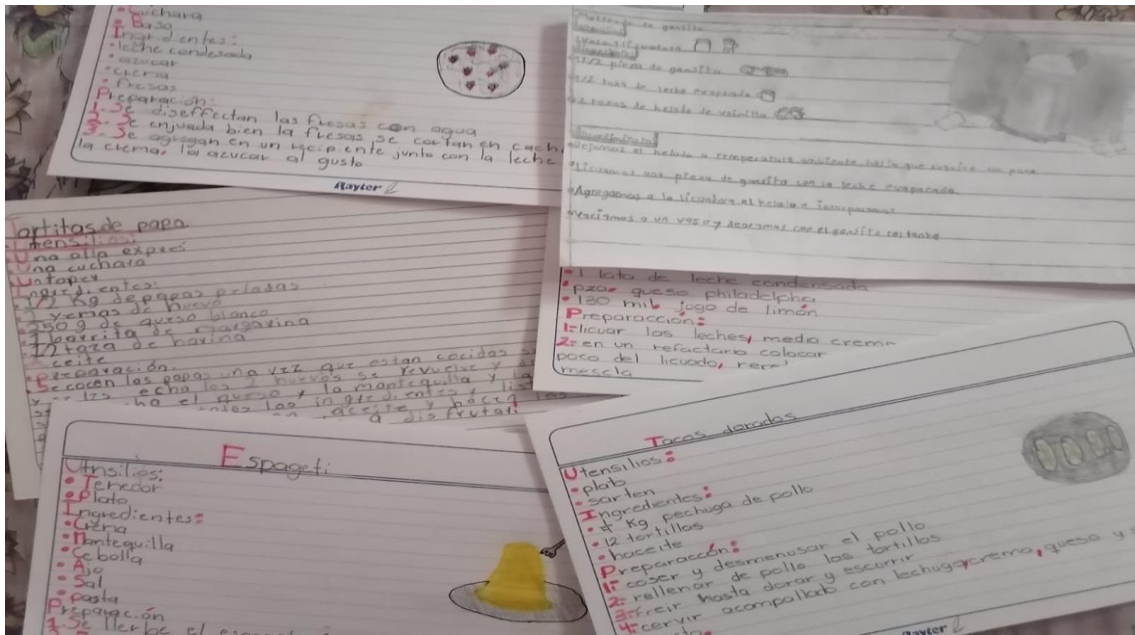 Cuchara
Baso
Ingredientes:
leche condesada
azucar
crema
fresas
Preparación:
1. Se diseffectan las fresas con agua
2. Se enjuada bien la fresas se cortan en cach
3. Se agregan en un recipiente junto con la leche
la crema, la azucar al gusto
Rayter
1 1/2 pieza de gansito
1/2 taza de leche evaporada
2 tazas de helado de vainilla
Procedimiento
Dejamos el helado a temperatura ambiente hasta que suavice un poco
Licuamos una pieza de gansito con la leche evaporada
Agregamos a la licuadora el helado e incorporamos
Vaciamos a un vaso y decoramos con el gansito restante
Tortitas de papa
Utensilios:
Una olla exprés
Una cuchara
Un toper
Ingredientes:
1/2 Kg de papas peladas
yemas de huevo
250 g de queso blanco
1 barrita de margarina
1/2 taza de harina
aceite
Preparación:
Se cocen las papas una vez que estan cocidas se
echa los 2 huevos se revuelve y
ha el queso, la mantequilla y la
los ingredientes, list
aceite y hacen las
a disfrutar!
1 lata de leche condensada
pza queso philadelphia
130 mil jogo de limón
Preparacción:
1: licuar las leches, media crema
2: en un refactario colocar
poco del licuado, rere
mescla
Espageti
Utnsilios:
Tenedor
Plato
Ingredientes:
Crema
Mantequilla
Cebolla
Ajo
Sal
pasta
Preparación
1. Se
Tacos dorados
Utensilios:
plato
sarten
Ingredientes:
Kg pechuga de pollo
12 tortillas
haceite
Preparacción:
1: coser y desmenusar el pollo
2: rellenar de pollo las tortillas
3: freir hasta dorar y escurrir
4: cervir acompallado con lechuga, crema, queso y
Rayter